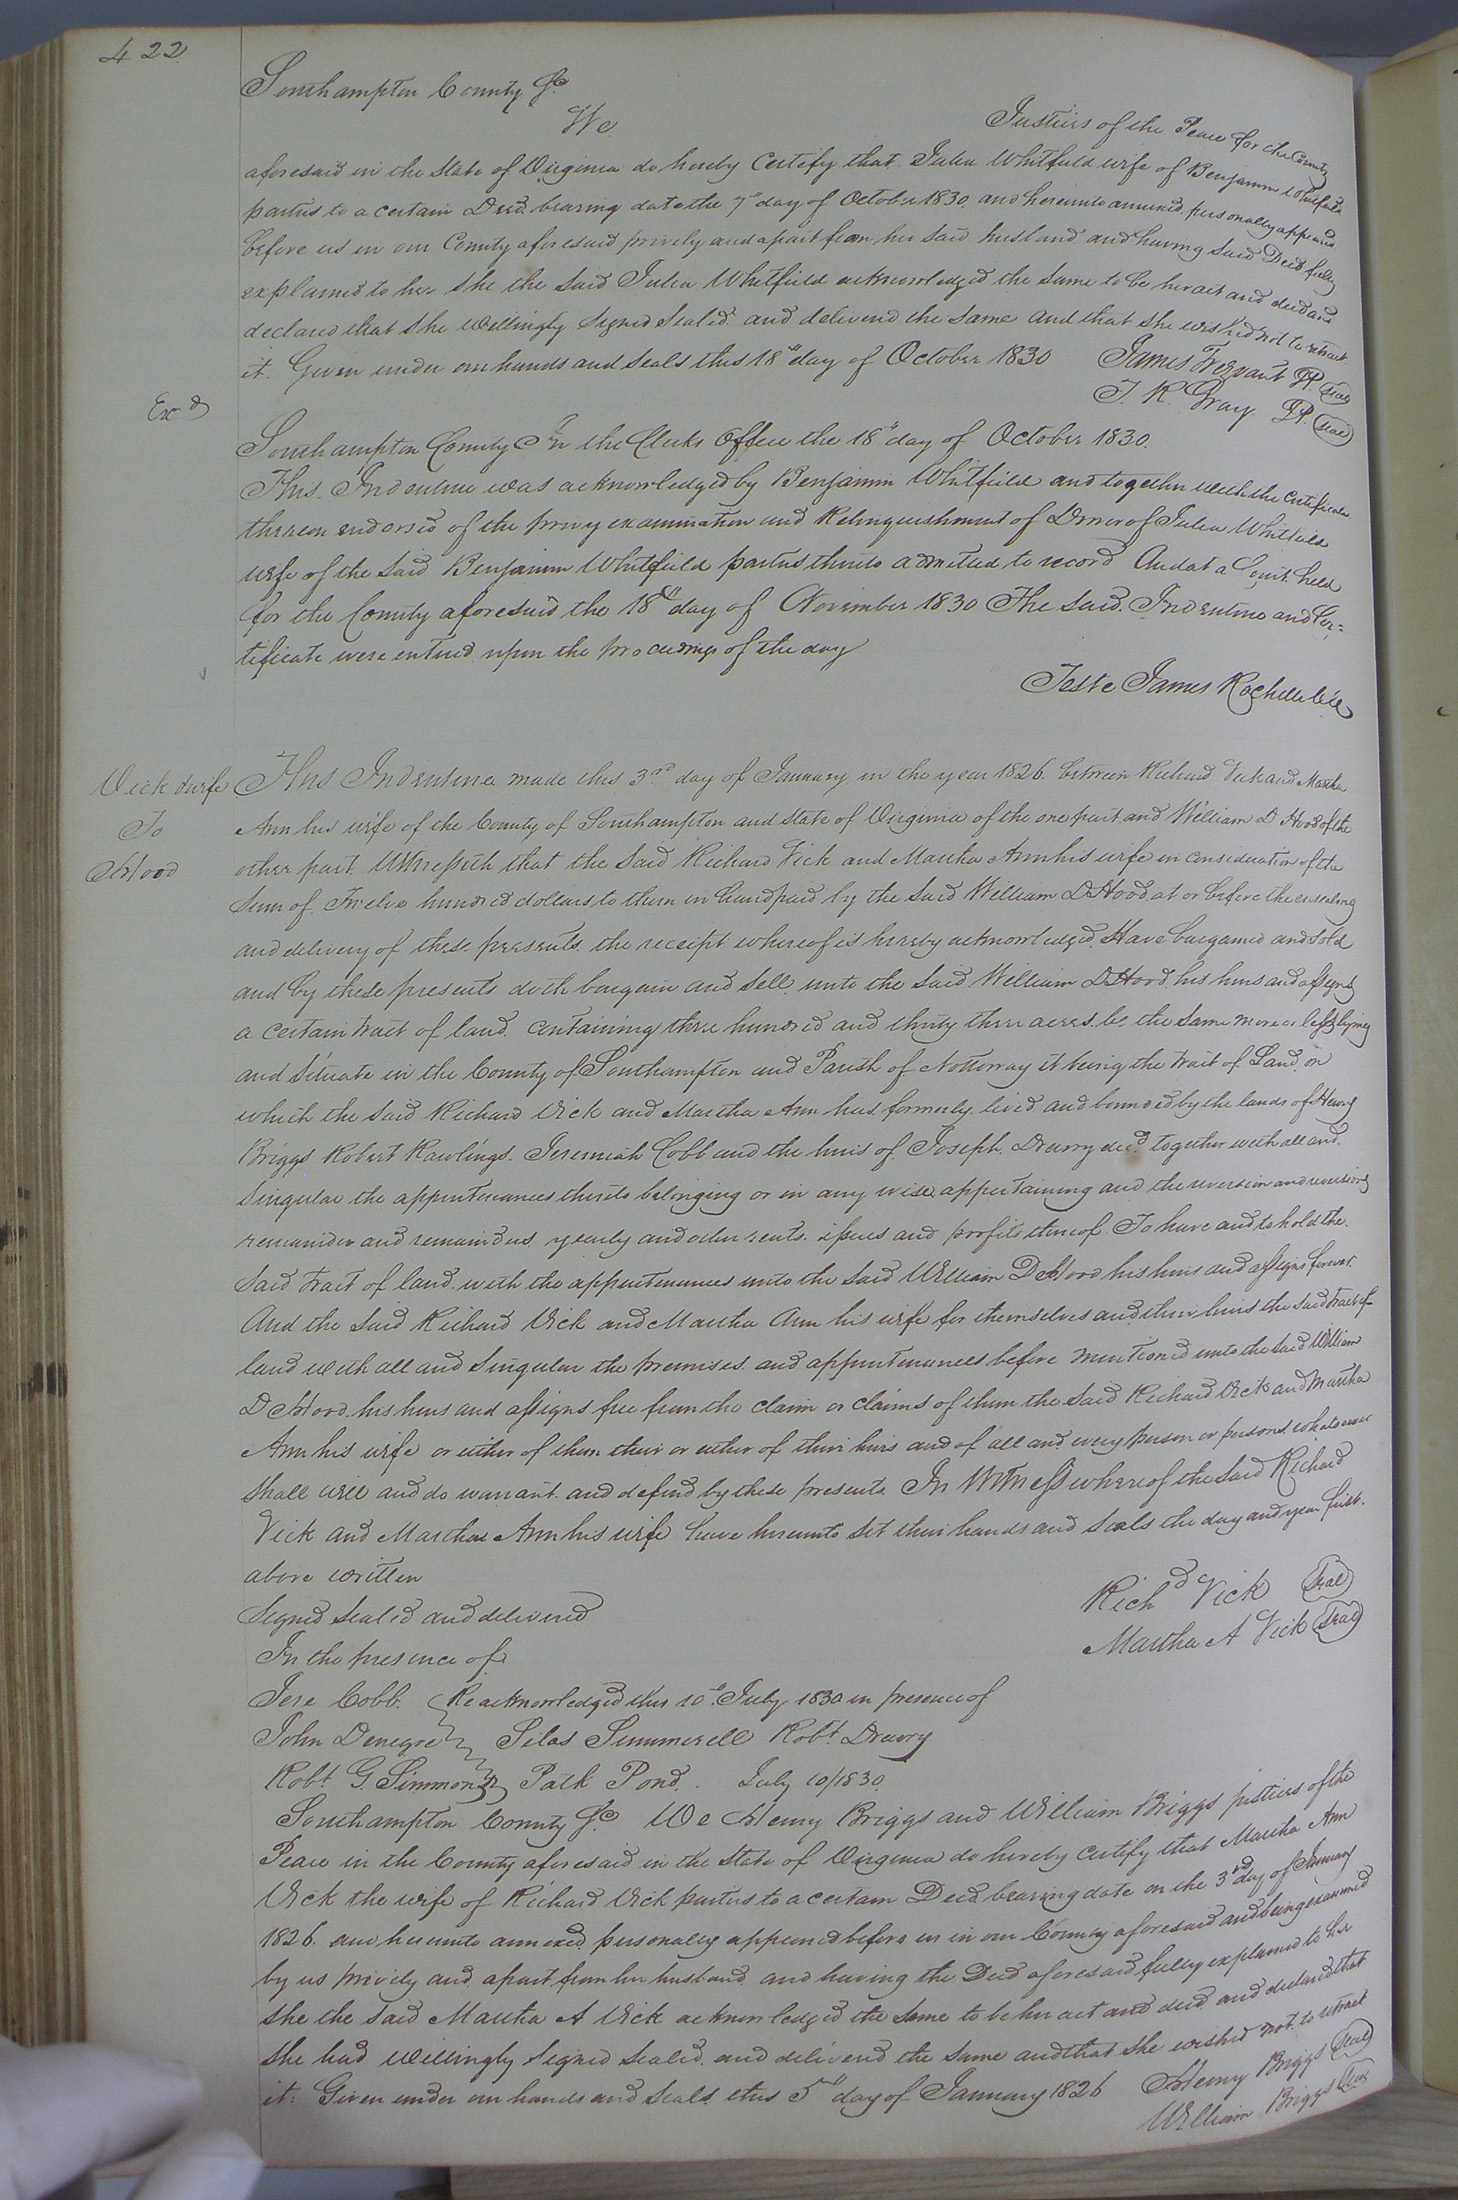 422
Southampton County Sc.
We Justices of the Peace for the County
aforesaid in the State of Virginia do hereby Certify that Julia Whitfield wife of Benjamin Whitfield
parties to a certain Deed bearing date the 7th day of October 1830 and hereunto annexed, personally appeared
before us in our County aforesaid privily and apart from her said husband and having said Deed fully
explained to her she the said Julia Whitfield acknowledged the same to be her act and deed and
declared that she willingly signed sealed and delivered the same and that she wished not to retract
it. Given under our hands and seals this 18th day of October 1830 James Trezvant JP. (seal)
Exd T. R. Gray JP. (seal)
Southampton County In the Clerks Office the 18th day of October 1830.
This Indenture was acknowledged by Benjamin Whitfield and together with the certificate
thereon endorsed of the privy examination and Relinquishment of Dower of Julia Whitfield
wife of the said Benjamin Whitfield parties thereto admitted to record And at a Court held
for the County aforesaid the 18th day of November 1830 The said Indenture and Cer=
tificate were entered upon the proceedings of the day
Teste James Rochelle Clk
Vick & wife
To
Hood
This Indenture made this 3rd day of January in the year 1826 between Richard Vick and Martha
Ann his wife of the County of Southampton and State of Virginia of the one part and William D Hood of the
other part Witnesseth that the said Richard Vick and Martha Ann his wife in consideration of the
sum of Twelve hundred dollars to them in hand paid by the said William D Hood at or before the ensealing
and delivery of these presents the receipt whereof is hereby acknowledged, Have bargained and sold
and by these presents doth bargain and sell unto the said William D Hood his heirs and assigns
a certain tract of land containing three hundred and thirty three acres be the same more or less lying
and situate in the County of Southampton and Parish of Nottoway it being the tract of Land on
which the said Richard Vick and Martha Ann has formerly lived and bounded by the lands of Henry
Briggs Robert Rawlings. Jeremiah Cobb and the heirs of Joseph Drewry decd. together with all and
singular the appurtenances thereto belonging or in any wise appertaining and the reversion and reversions
remainder and remainders yearly and other rents issues and profits thereof To have and to hold the
said tract of land with the appurtenances unto the said William D Hood his heirs and assigns forever.
And the said Richard Vick and Martha Ann his wife for themselves and their heirs the said tract of
land with all and singular the premises and appurtenances before mentioned unto the said William
D Hood his heirs and assigns free from the claim or claims of them the said Richard Vick and Martha
Ann his wife or either of them their or either of their heirs and of all and every person or persons whatsoever
shall will and do warrant and defend by these presents. In Witness whereof the said Richard
Vick and Martha Ann his wife have hereunto set their hands and seals the day and year first
above written
Signed sealed and delivered Richd Vick (seal)
In the presence of Martha A Vick (seal)
Jere Cobb. Re acknowledged this 10th July 1830 in presence of
John Denegre Silas Summerell Robt Drewry
Robt G. Simmons Patk Pond. July 10/1830
Southampton County Sc. We Henry Briggs and William Briggs justices of the
Peace in the County aforesaid in the State of Virginia do hereby certify that Martha Ann
Vick the wife of Richard Vick parties to a certain Deed bearing date on the 3rd day of January
1826 and hereunto annexed personally appeared before us in our County aforesaid and being examined
by us privily and apart from her husband and having the Deed aforesaid fully explained to her
she the said Martha A Vick acknowledged the same to be her act and deed and declared that
she had willingly signed sealed and delivered the same and that she wished not to retract
it. Given under our hands and seals this 5th day of January 1826 Henry Briggs (seal)
William Briggs (seal)